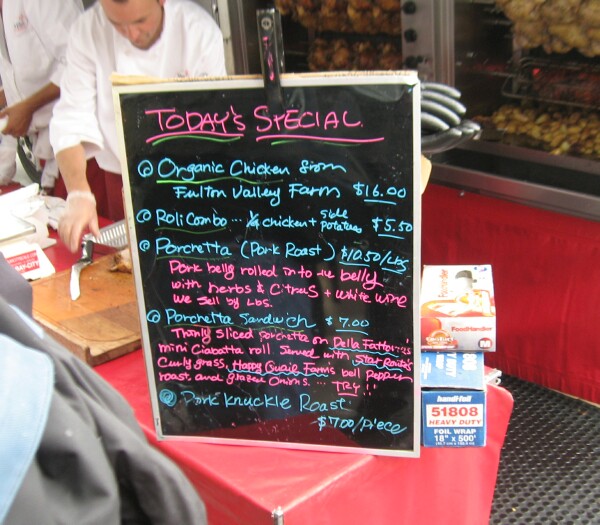 TODAY'S SPECIAL
Organic Chicken from
Fulton Valley Farm $16.00
Roli Combo ... 1/4 chicken + side potatoes $5.50
Porchetta (Pork Roast) $10.50/Lbs
Pork belly rolled into the belly
with herbs & Citrus + white wine
We sell by Lbs.
Porchetta Sandwich $7.00
Thinly Sliced porchetta on Della Fattoria's
mini Ciabatta roll Served with Star Route's
Curly grass, Happy Quail Farms bell pepper
roast and glazed Onions ... TRY!!
Pork Knuckle Roast
$7.00/Piece
FoodHandler
M
handi-foil
51808
HEAVY DUTY
FOIL WRAP
18" x 500'